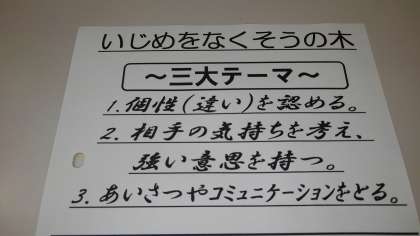 いじめをなくそうの木
～三大テーマ～
1.個性(違い)を認める。
2.相手の気持ちを考え、
強い意思を持つ。
3.あいさつやコミュニケーションをとる。